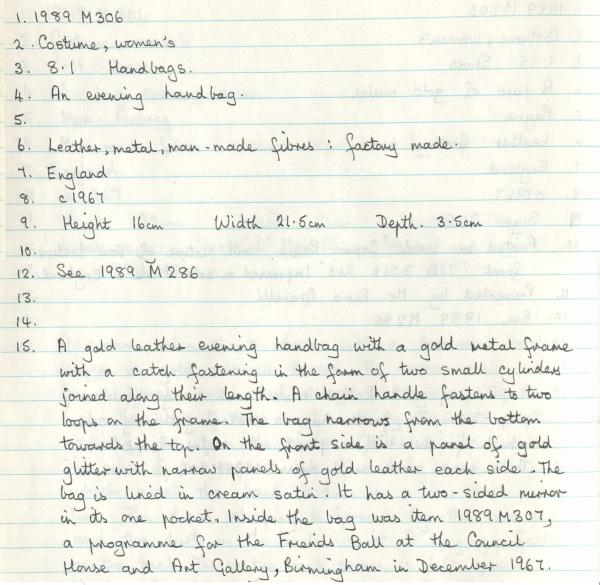 1. 1989 M306
2. Costume, women's
3. 8.1 Handbags.
4. An evening handbag.
5.
6. Leather, metal, man-made fibres : factory made.
7. England
8. c1967
9. Height 16cm Width 21.5cm Depth. 3.5cm
10.
12. See 1989 M 286
13.
14.
15. A gold leather evening handbag with a gold metal frame
with a catch fastening in the form of two small cylinders
joined along their length. A chain handle fastens to two
loops on the frame. The bag narrows from the bottom
towards the top. On the front side is a panel of gold
glitter with narrow panels of gold leather each side. The
bag is lined in cream satin. It has a two-sided mirror
in its one pocket. Inside the bag was item 1989 M307,
a programme for the Friends Ball at the Council
House and Art Gallery, Birmingham in December 1967.